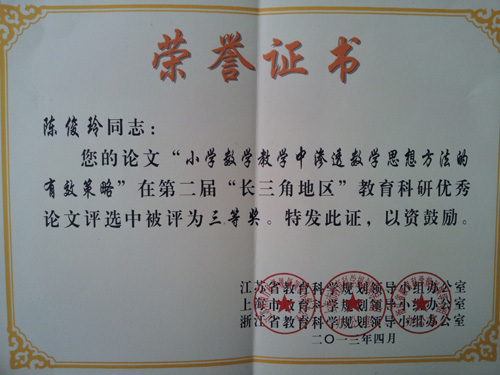 荣誉证书
陈俊玲同志：
您的论文“小学数学教学中渗透数学思想方法的
有效策略”在第二届“长三角地区”教育科研优秀
论文评选中被评为三等奖。特发此证，以资鼓励。
江苏省教育科学规划领导小组办公室
上海市教育科学规划领导小组办公室
浙江省教育科学规划领导小组办公室
二〇一三年四月